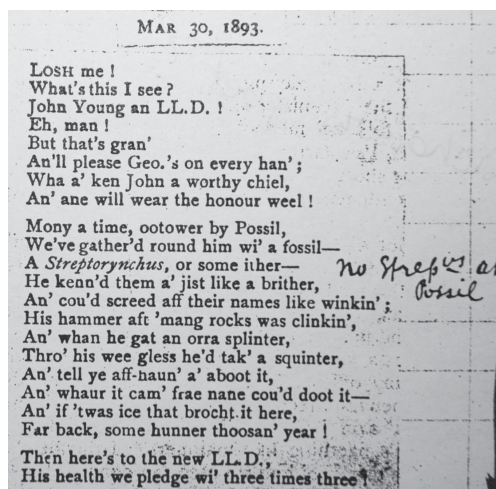 MAR 30, 1893.
LOSH me !
What's this I see ?
John Young an LL.D. !
Eh, man !
But that's gran'
An'll please Geo.'s on every han' ;
Wha a' ken John a worthy chiel,
An' ane will wear the honour weel !
Mony a time, ootower by Possil,
We've gather'd round him wi' a fossil—
A Streptorynchus, or some ither—
He kenn'd them a' jist like a brither,
An' cou'd screed aff their names like winkin' ;
His hammer aft 'mang rocks was clinkin',
An' whan he gat an orra splinter,
Thro' his wee gless he'd tak' a squinter,
An' tell ye aff-haun' a' aboot it,
An' whaur it cam' frae nane cou'd doot it—
An' if 'twas ice that brocht it here,
Far back, some hunner thoosan' year !
Then here's to the new LL.D.,
His health we pledge wi' three times three !
No Strepus at
Possil